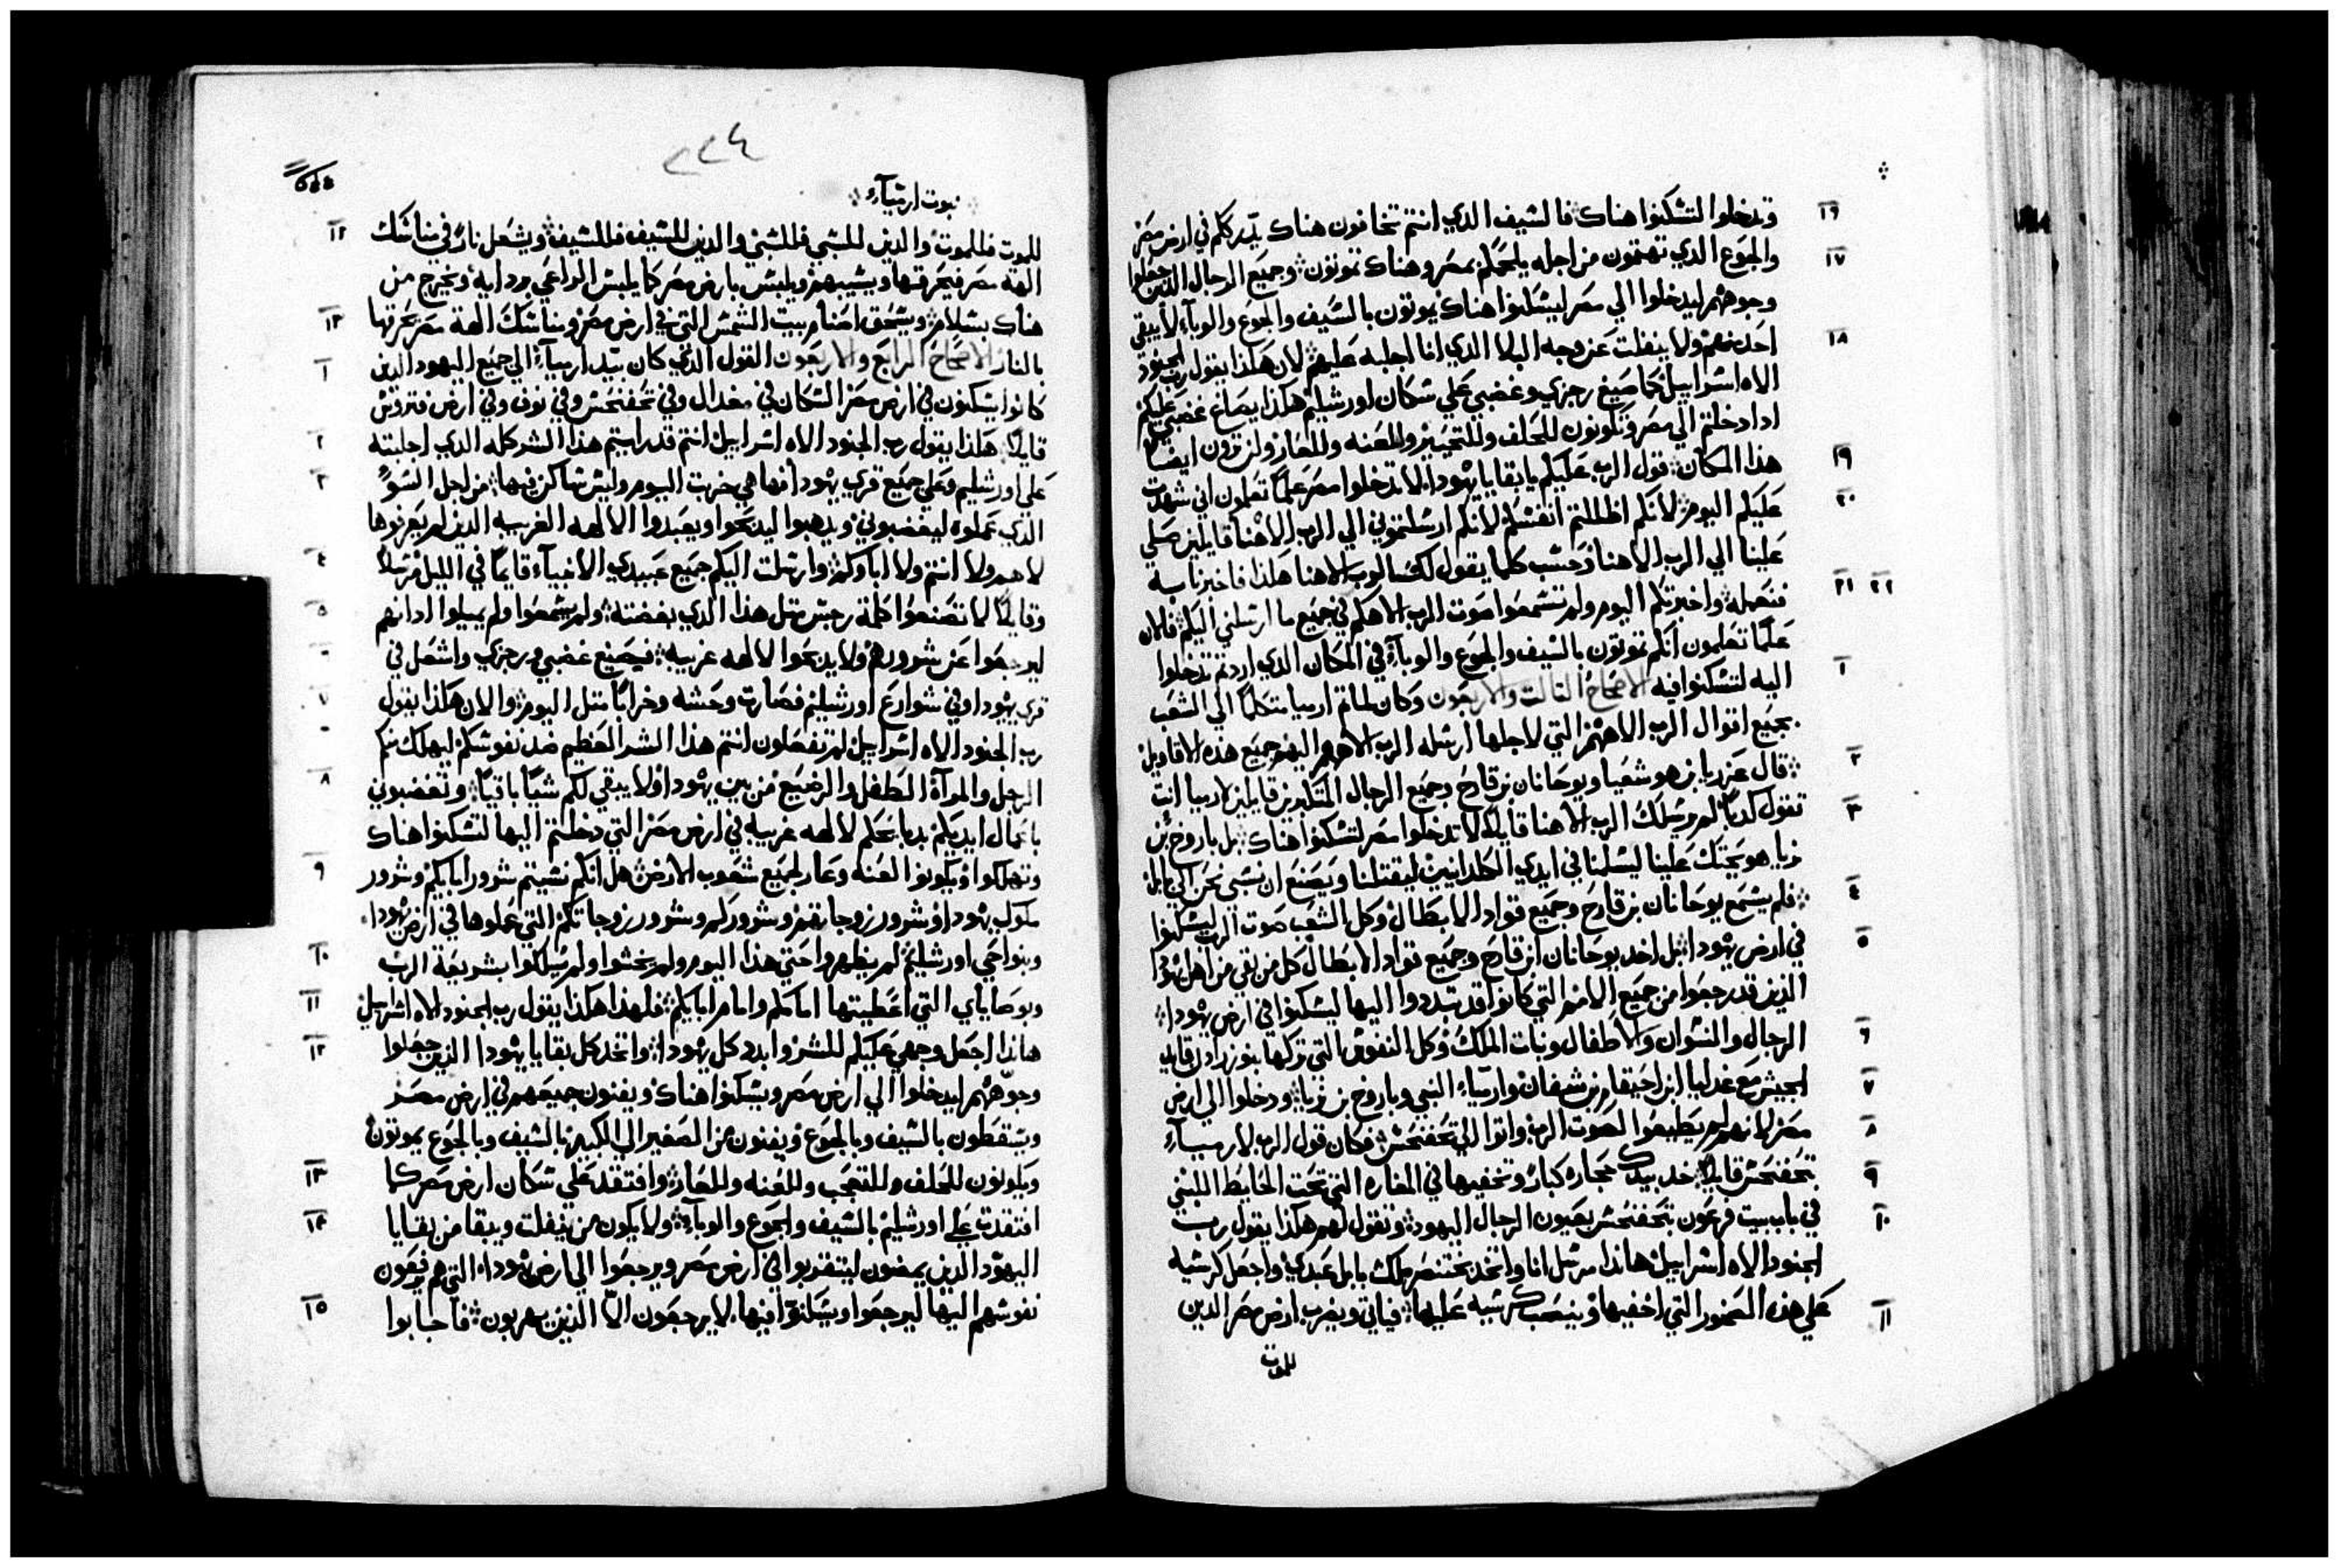 وتدخلوا لتسكنوا هناك فالسيف الدي انتم تخافون هناك يدرككم في ارض مصر
١٦
والجوع الدي تهتمون من اجله يلحقكم بمصر وهناك تموتون وجميع الرجال الدين جعلوا
١٧
وجوههم ليدخلوا الي مصر ليسكنوا هناك يموتون بالسيف والجوع والوباء لا يبقي
احد منهم ولا ينفلت عن وجه البلا الدي انا اجلبه عليهم لان هكدا يقول رب الجنود
١٨
الاه اسراييل كما صيغ رجزي وغضبي علي سكان اورشليم هكدا يصاغ غضبي عليكم
ادا دخلتم الي مصر وتكونون للحلف وللتحير وللعنه وللعار ولن ترون ايضا
هدا المكان قول الرب عليكم يا بقايا يهودا لا تدخلوا مصر علما تعلمون اني شهدت
١٩
عليكم اليوم لانكم اظللتم انفسكم لانكم ارسلتموني الي الرب الاهنا قايلين صلي
٢٠
علينا الي الرب الاهنا وحسب كلما يقول لك الرب الاهنا هكدا فاخبرنا به
فنعمله واخبرتكم اليوم ولم تسمعوا صوت الرب الاهكم في جميع ما ارسلني اليكم فالان
٢١ ٢٢
علما تعلمون انكم تموتون بالسيف والجوع والوباء في المكان الدي اردتم تدخلوا
اليه لتسكنوا فيه الاصحاح التالت والاربعون وكان لما تم ارميا متكلما الي الشعب
١
بجميع اقوال الرب الاههم التي لاجلها ارسله الرب الاههم اليهم جميع هده الاقاويل
قال عزريا بن هوشعيا ويوحانان بن قارح وجميع الرجال المتكبرين قايلين لارميا انت
٢
تقول كدبا لم يرسلك الرب الاهنا قايلا لا تدخلوا مصر لتسكنوا هناك بل باروخ بن
٣
نريا هو يحتك علينا ليسلمنا في ايدي الكلدانيين ليقتلنا ويصنع ان نسبي نحن الي بابل
فلم يسمع يوحانان بن قارح وجميع قواد الابطال وكل الشعب صوت الرب ليسكنوا
٤
في ارض يهودا بل اخد يوحانان ابن قارح وجميع قواد الابطال كل من بقي من اهل يهودا
٥
الذين قد رجعوا من جميع الامم التي كانوا قد تبددوا اليها ليسكنوا في ارض يهودا
الرجال والنسوان والاطفال وبنات الملك وكل النفوس التي تركها بنوزرادن قايد
٦
الجيش مع غدليا ابن احيقام بن شيفان وارمياء النبي وباروخ بن نريا ودخلوا الي ارض
٧
مصر لانهم لم يطيعوا لصوت الرب واتوا الي تحفنحس فكان قول الرب لارمياء
٨
بتحفنحس قايلا خد بيدك حجاره كبار وتخفيها في المغاره التي تحت الحايط المبني
٩
في باب بيت فرعون بتحفنحس بعيون الرجال اليهود وتقول لهم هكدا يقول رب
١٠
الجنود الاه اسراييل هاندا مرسل انا واتخد بختنصر ملك بابل عبدي واجعل كرسيه
علي هده الصخور التي اخفيها وينصب كرسيه عليها فياتي ويضرب ارض مصر الدين
١١
للموت
٢٢٤
نبوت ارمياء
للموت فللموت والدين للسبي فللسبي والدين للسيف فللسيف ويشعل نار في مناسك
١٢
الهة مصر فيحرقها ويسبيهم ويلبس بارض مصر كما يلبس الراعي ردايه ويخرج من
هناك بسلام ويسحق اصنام بيت الشمس التي في ارض مصر ومناسك الهة مصر يحرقها
١٣
بالنار الاصحاح الرابع والاربعون القول الدي كان بيد ارمياء الي جميع اليهود الدين
١
كانوا يسكنون في ارض مصر السكان في مغدال وفي تحفنحس وفي نوف وفي ارض فتروس
قايلا هكدا يقول رب الجنود الاه اسراييل انتم قد رايتم هدا الشر كله الدي اجلبته
٢
علي اورشليم وعلي جميع قري يهودا فها هي خربت اليوم وليس ساكن فيها من اجل السوء
٣
الدي عملوه ليغضبوني ويدهبوا ليدبحوا ويعبدوا الالهه الغريبه الدين لم يعرفوها
لا هم ولا انتم ولا اباوكم وارسلت اليكم جميع عبيدي الانبياء قايما في الليل مرسلا
٤
وقايلا لا تصنعوا كلمة رجس متل هدا الدي بغضته ولم يسمعوا ولم يميلوا ادانهم
٥
ليرجعوا عن شرورهم ولا يدبحوا لالهه غريبه فيصنع غضبي ورجزي واشتعل في
٦
قري يهودا وفي شوارع اورشليم فصارت وحشه وخرابا متل اليوم والان هكدا يقول
٧
رب الجنود الاه اسراييل لم تفعلون انتم هدا الشر العظيم ضد نفوسكم ليهلك منكم
الرجل والمرآة الطفل والرضيع من بين يهودا ولا يبقي لكم شيا باقيا وتغضبوني
٨
باعمال ايديكم بدبايحكم لالهه غريبه في ارض مصر التي دخلتم اليها لتسكنوا هناك
وتهلكوا وتكونوا لعنه وعار لجميع شعوب الارض هل انكم نسيتم شرور ابايكم وشرور
٩
ملوك يهودا وشرور زوجاتهم وشروركم وشرور زوجاتكم التي عملوها في ارض يهودا
وبنواحي اورشليم لم يطهروا حتي هدا اليوم ولم يخشوا ولم يسلكوا بشريعة الرب
١٠
وبوصاياي التي اعطيتها امامكم وامام ابايكم فلهدا هكدا يقول رب الجنود الاه اسراييل
١١
هاندا اجعل وجهي عليكم للشر وابدد كل يهودا واتخد كل بقايا يهودا الدين جعلوا
١٢
وجوههم ليدخلوا الي ارض مصر ويسكنوا هناك ويفنون جميعهم في ارض مصر
ويسقطون بالسيف وبالجوع ويفنون من الصغير الي الكبير بالسيف وبالجوع يموتون
ويكونون للحلف وللتعجب وللعنه وللعار وافتقد علي سكان ارض مصر كما
١٣
افتقدت علي اورشليم بالسيف والجوع والوباء ولا يكون من يفلت ويبقا من بقايا
١٤
اليهود الدين يمضون ليتغربوا في ارض مصر ويرجعوا الي ارض يهودا التي هم يرفعون
نفوسهم اليها ليرجعوا ويسكنوا فيها لا يرجعون الا الدين يهربون فاجابوا
١٥